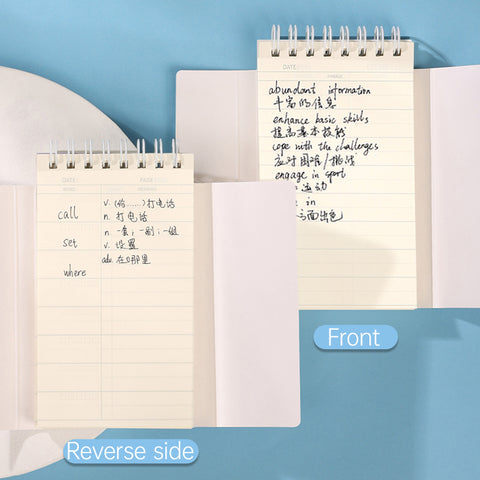 DATE:
PHRASE
abundant information
丰富的信息
enhance basic skills
提高基本技能
cope with the challenges
应对困难/挑战
engage in sport
运动
in
方面出色
Front
DATE: PAGE:
WORD MEANING
call v. (给……)打电话
n. 打电话
set n. 一套;一副;一组
v. 设置
where adv. 在哪里
Reverse side